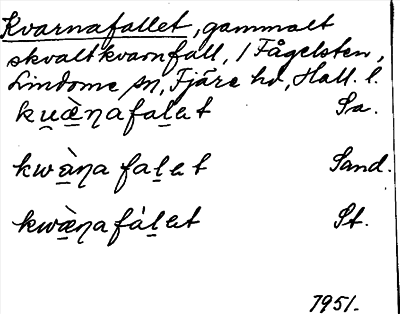 Kvarnafallet, gammalt
skvaltkvarnfall, i Fågelsten,
Lindome sn, Fjäre hd, Hall. l.
ku̯æ̀ṇafaḷet Sa.
kwæ̀ṇa faḷet Sand.
kwæ̀ṇafáḷet St.
1951.